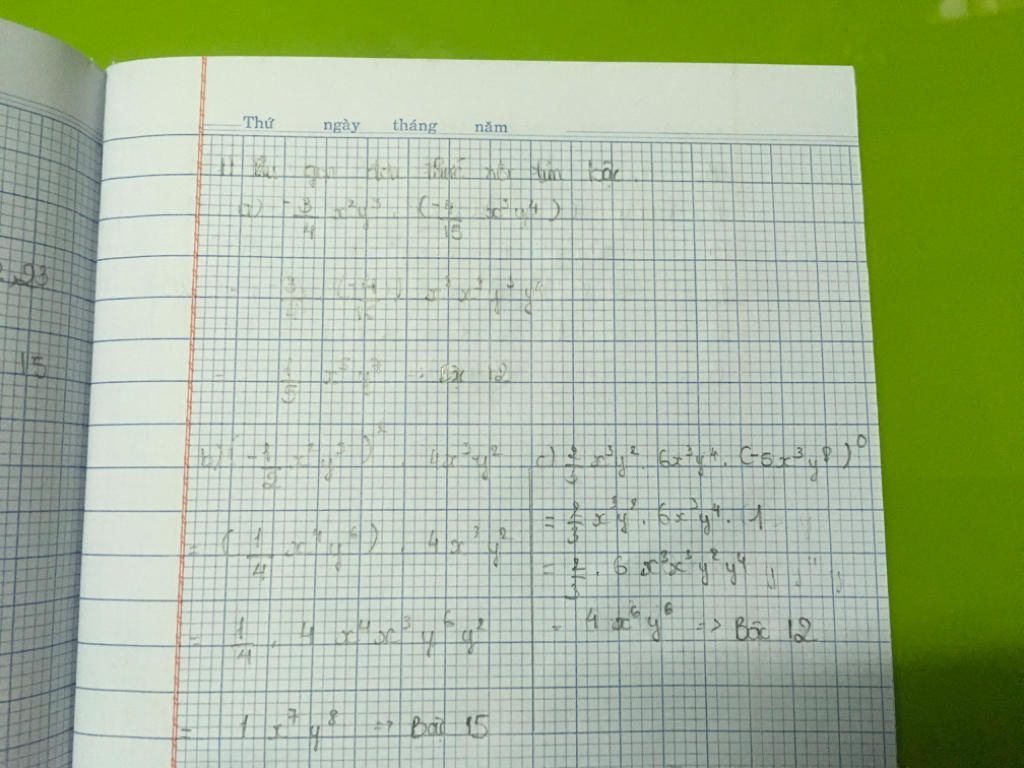 Thứ ngày tháng năm
1) Thu gọn đơn thức rồi tìm bậc.
a) -3/4 x²y³ . (-4/15 x³y⁴)
x² x³ y³ y⁴
= 1/5 x⁵ y⁷ 12
b) (-1/2 x² y³)² . 4x³y²
= (1/4 x⁴y⁶) . 4x³y²
= 1/4 . 4 x⁴x³y⁶y²
= 1 x⁷y⁸ => Bậc 15
c) 2/3 x³y² . 6x³y⁴ . (-5x³y⁸)⁰
= 2/3 x³y² . 6x³y⁴ . 1
= 2/3 . 6 x³x³y²y⁴
= 4 x⁶y⁶ => Bậc 12
23
15